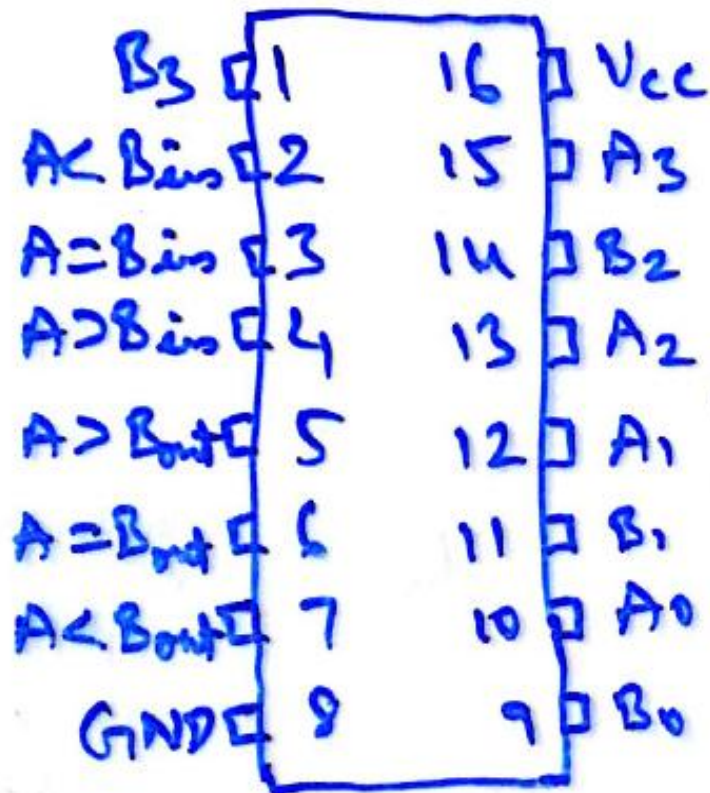 B3 1 16 Vcc
A<Bin 2 15 A3
A=Bin 3 14 B2
A>Bin 4 13 A2
A>Bout 5 12 A1
A=Bout 6 11 B1
A<Bout 7 10 A0
GND 8 9 B0